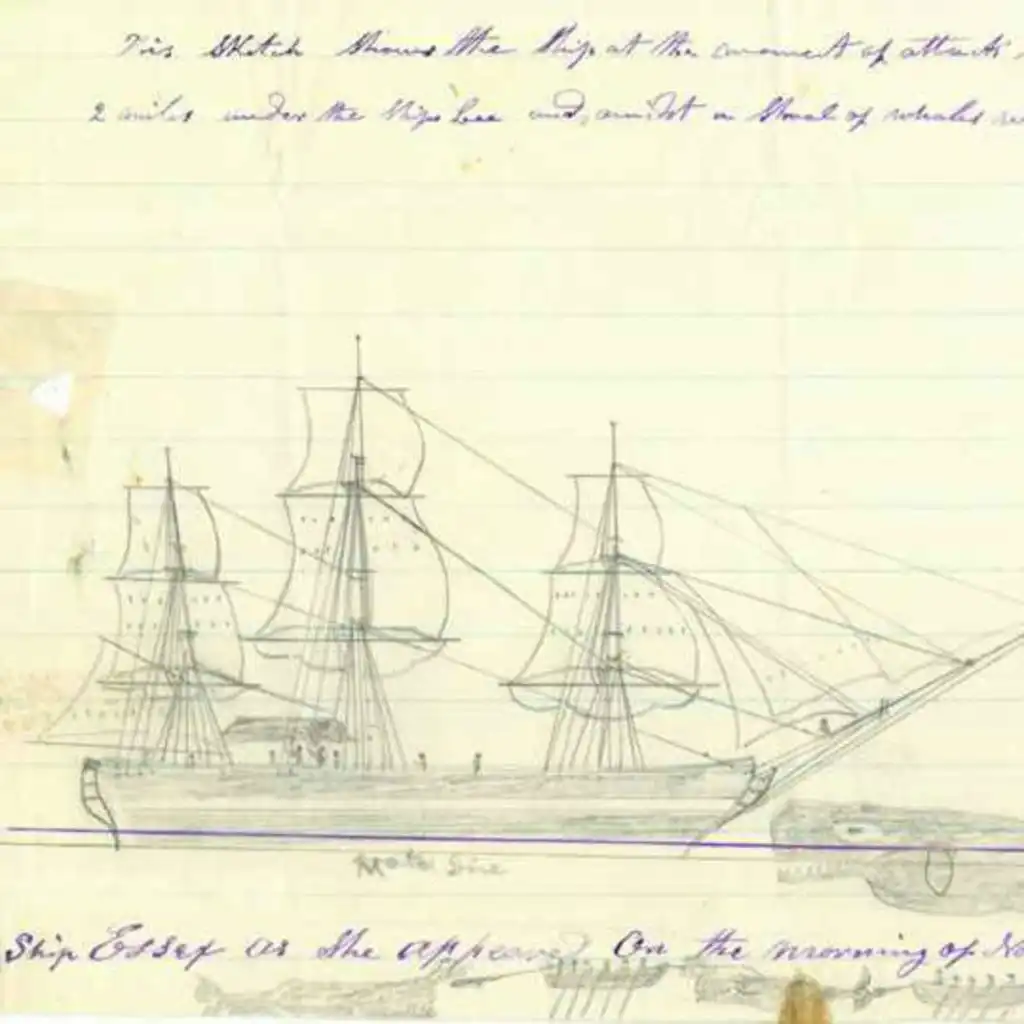 This Sketch Shows the Ship at the moment of attack
2 miles under the Ships Lee and, amidst a Shoal of whales
Ship Essex as She appeared On the morning of No